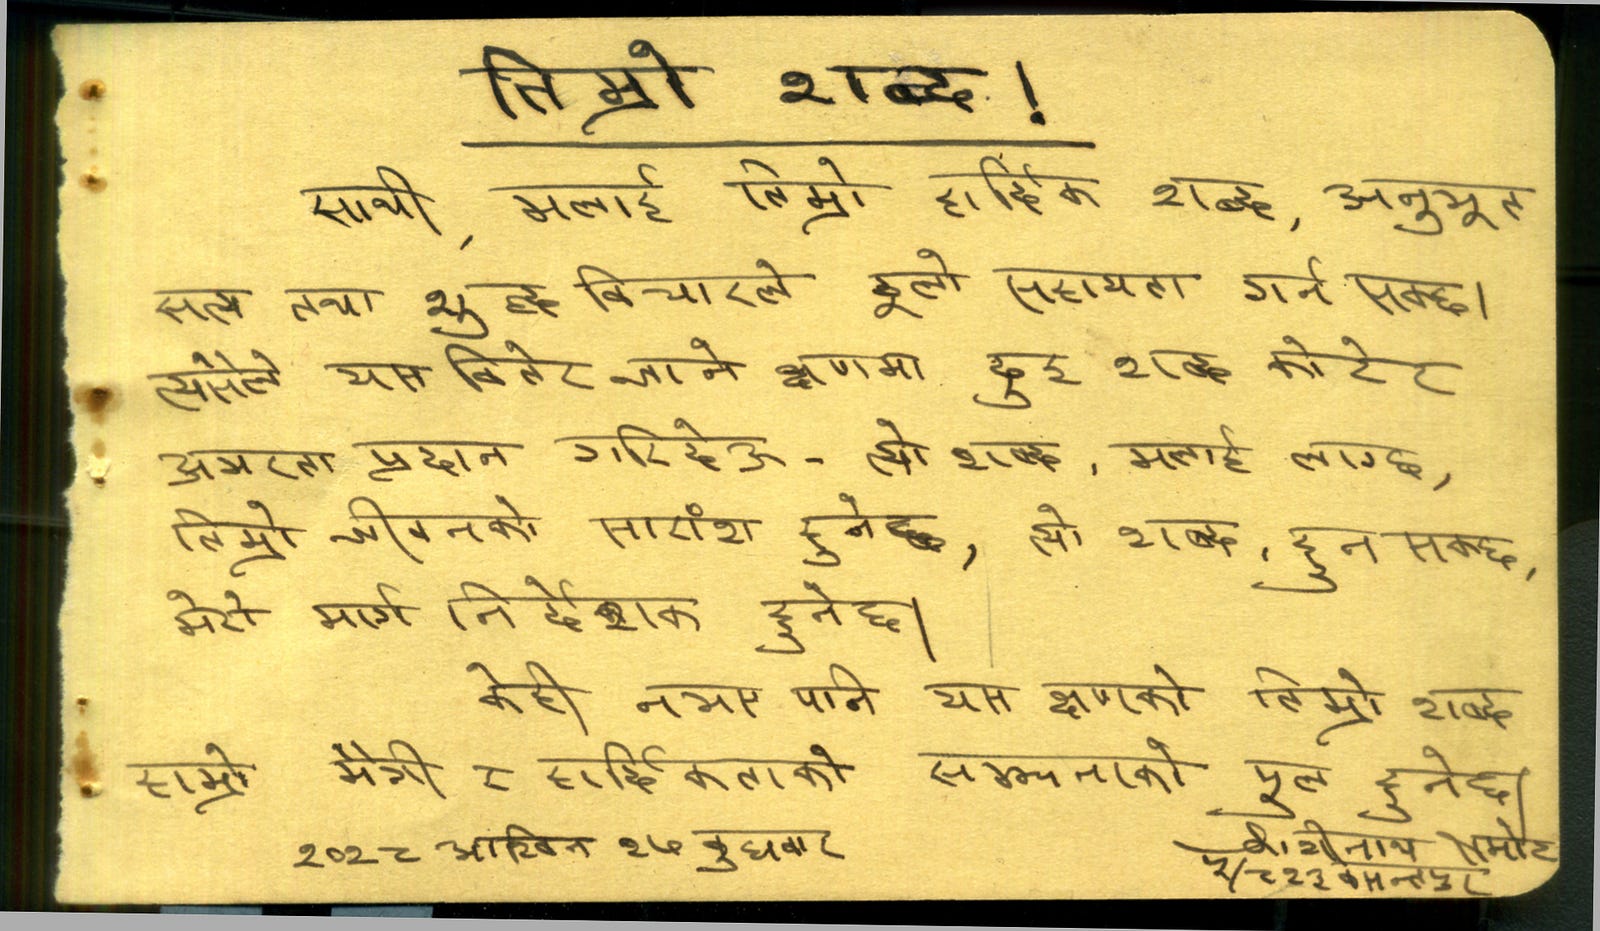 तिम्रो शब्द !
साथी, मलाई तिम्रो हार्दिक शब्द, अनुभूत
सत्य तथा शुद्ध विचारले ठूलो सहायता गर्न सक्छ।
त्यसैले यस बितेर जाने क्षणमा दुइ शब्द कोरेर
अमरता प्रदान गरिदेऊ - त्यो शब्द, मलाई लाग्छ,
तिम्रो जीवनको सारांश हुनेछ, त्यो शब्द, हुन सक्छ,
मेरो मार्ग निर्देशक हुनेछ।
केही नभए पनि यस क्षणको तिम्रो शब्द
हाम्रो मैत्री र हार्दिकताको सम्झनाको पुल हुनेछ।
२०२८ आश्विन २७ बुधवार
काशीनाथ तमोट